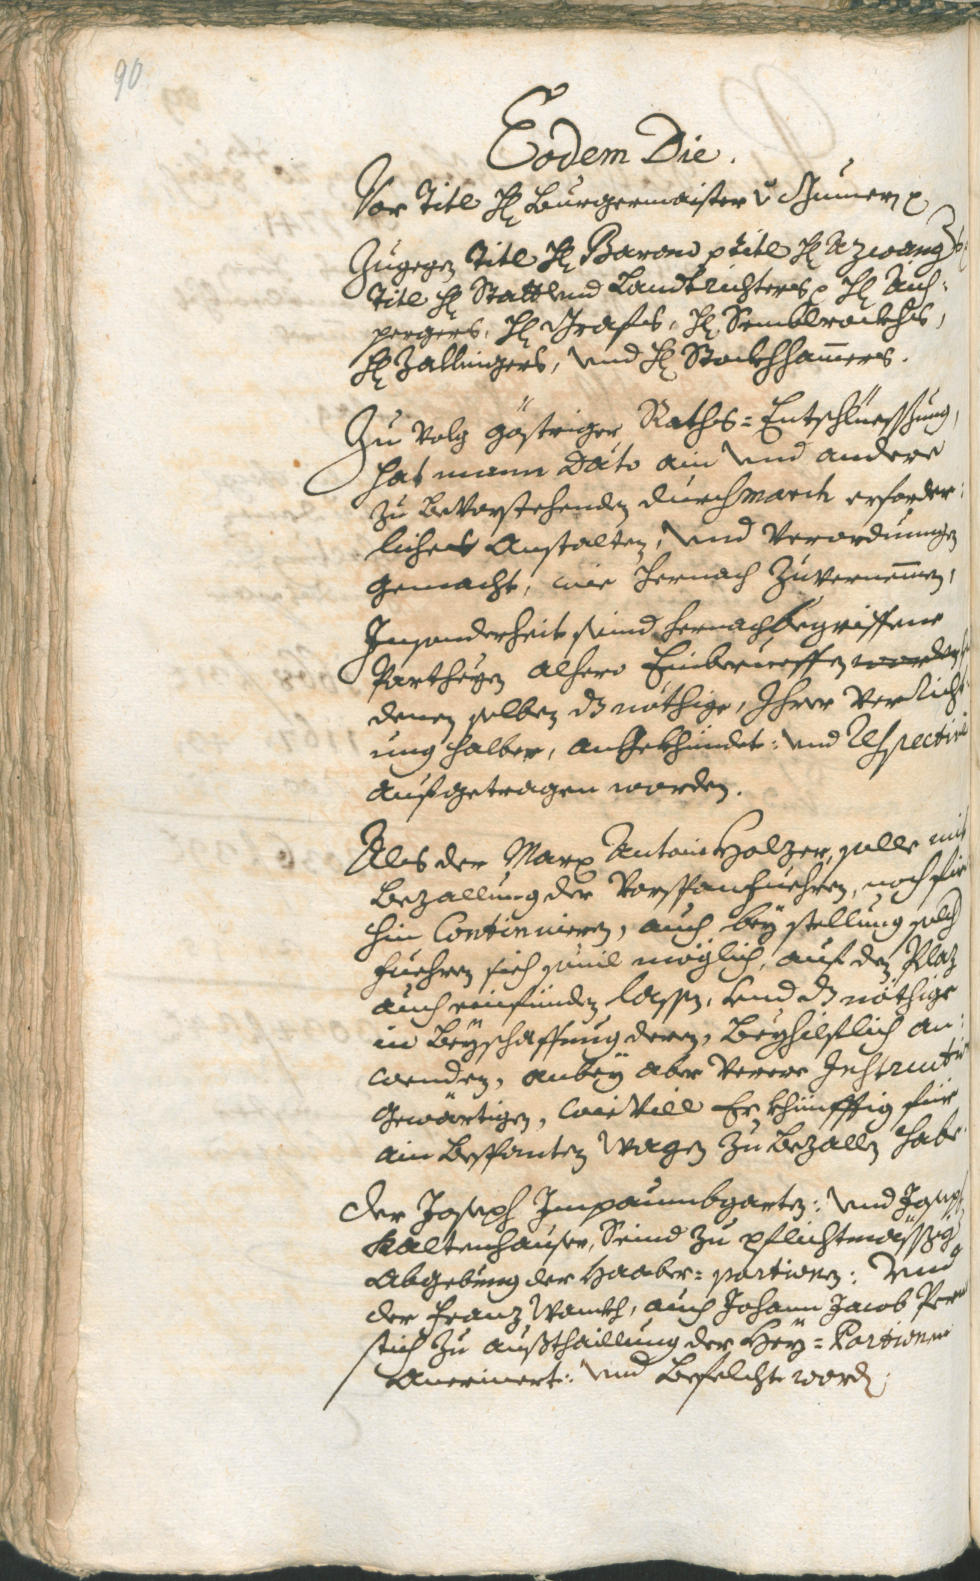 90.
Eodem Die.
Vor Titl H: Burgermaister v Gumer p
Zugegen Titl H: Baron p titl H: Azwang
Titl H: Statt: und Landtrichters p H: Auch-
pergers, H: Grafs, H: Semblrockhs,
H: Zallingers, und H: Stockhhamers.
Zu Volg göstriger Raths=Entschliessßung,
hat mann Dato ain und andere
zu bevorstehenden durchmarch erforder:
lichen Anstalten, und Verordnungen
gemacht, wie hernach zuvernemen,
Insonderheit seind hernachbegriffene
Partheyen alhero Einberueffen worden
denen selben dz nöthige, Ihrer Verricht
ung halber, angekhündet: und Respective
aufgetragen worden.
Als der Marx Antoni Holzer, solle mit
Bezallung der Vorspanfuehren, noch für
hin Continuieren, auch bey stellung solch
fuehren sich souil möglich, auf den Plaz
auch einfünden lassen, und dz nöthige
in Beyschaffung deren, Beyhilflich an:
wenden, anbey aber Verere Instruction
gewärtigen, wie Vill Er khünfftig für
ain bespanten Wagen zu bezallen habe.
Der Joseph Impaumbgarten: und Joseph
Kaltenhauser, Seind zu pflichtmässßig
Abgebung der Haaber=portionen: und
der Franz Wanckh, auch Johann Jacob Per
stich zu außthaillung der Hey=Portionen
Anerinert: und Befelcht word.